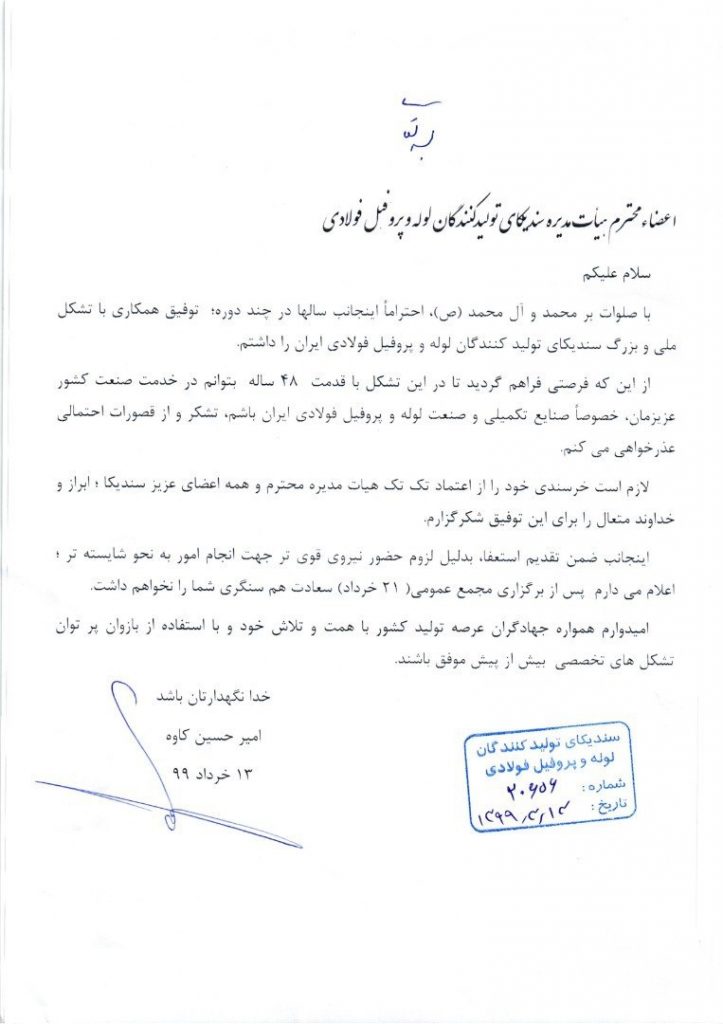 اعضاء محترم هیأت مدیره سندیکای تولیدکنندگان لوله و پروفیل فولادی
سلام علیکم
با صلوات بر محمد و آل محمد (ص)، احتراماً اینجانب سالها در چند دوره؛ توفیق همکاری با تشکل
ملی و بزرگ سندیکای تولید کنندگان لوله و پروفیل فولادی ایران را داشتم.
از این که فرصتی فراهم گردید تا در این تشکل با قدمت ۴۸ ساله بتوانم در خدمت صنعت کشور
عزیزمان، خصوصاً صنایع تکمیلی و صنعت لوله و پروفیل فولادی ایران باشم، تشکر و از قصورات احتمالی
عذرخواهی می کنم.
لازم است خرسندی خود را از اعتماد تک تک هیات مدیره محترم و همه اعضای عزیز سندیکا ؛ ابراز و
خداوند متعال را برای این توفیق شکرگزارم.
اینجانب ضمن تقدیم استعفا، بدلیل لزوم حضور نیروی قوی تر جهت انجام امور به نحو شایسته تر ؛
اعلام می دارم پس از برگزاری مجمع عمومی( ۲۱ خرداد) سعادت هم سنگری شما را نخواهم داشت.
امیدوارم همواره جهادگران عرصه تولید کشور با همت و تلاش خود و با استفاده از بازوان پر توان
تشکل های تخصصی بیش از پیش موفق باشند.
خدا نگهدارتان باشد
امیر حسین کاوه
۱۳ خرداد ۹۹
سندیکای تولید کنندگان
لوله و پروفیل فولادی
شماره: ۲۰۶۵۶
تاریخ: ۱۳۹۹٫۳٫۱۳